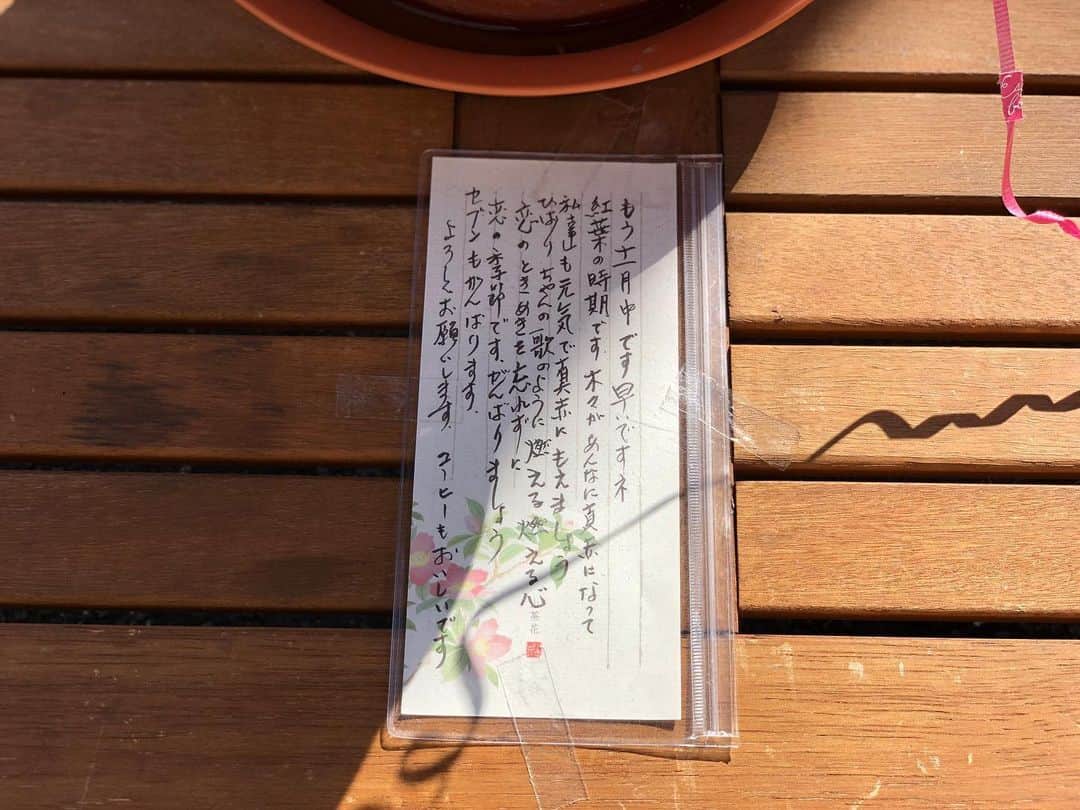 もう十一月中です早いですネ
紅葉の時期です、木々があんなに真赤になって
私達も元気で真赤にもえましょう
ひばりちゃんの歌のように燃える燃える心
恋のときめきを忘れずに
恋の季節です、がんばりましょう
セブンもがんばります、
よろしくお願いします、コーヒーもおいしいです
茶花